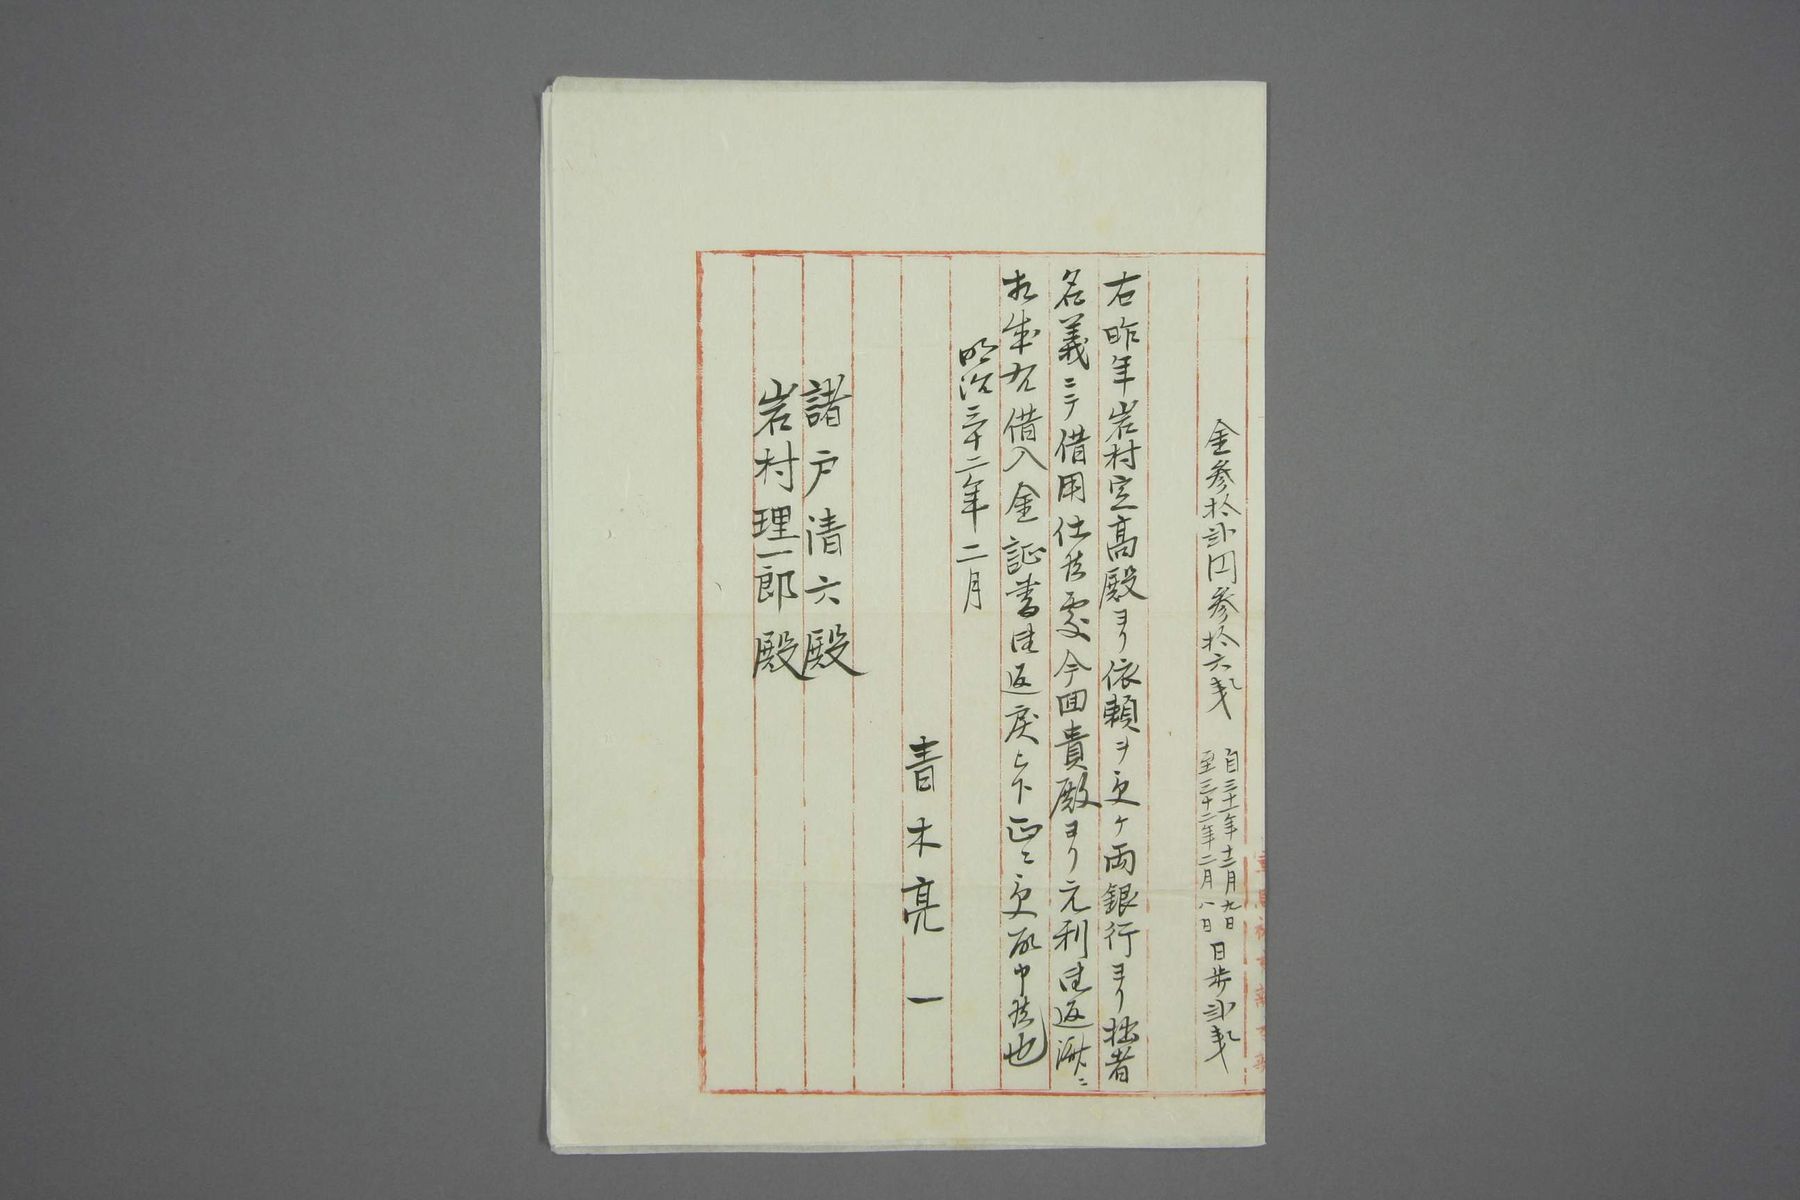 金参拾弐円参拾六銭
自三十一年十二月九日
至三十二年二月八日
日歩弐銭
右昨年岩村定高殿ヨリ依頼ヲ受ケ両銀行ヨリ拙者
名義ニテ借用仕候処今回貴殿ヨリ元利御返済ニ
相成右借入金証書御返戻被下正ニ受取申候也
明治三十二年二月
青木亮一
諸戸清六殿
岩村理一郎殿